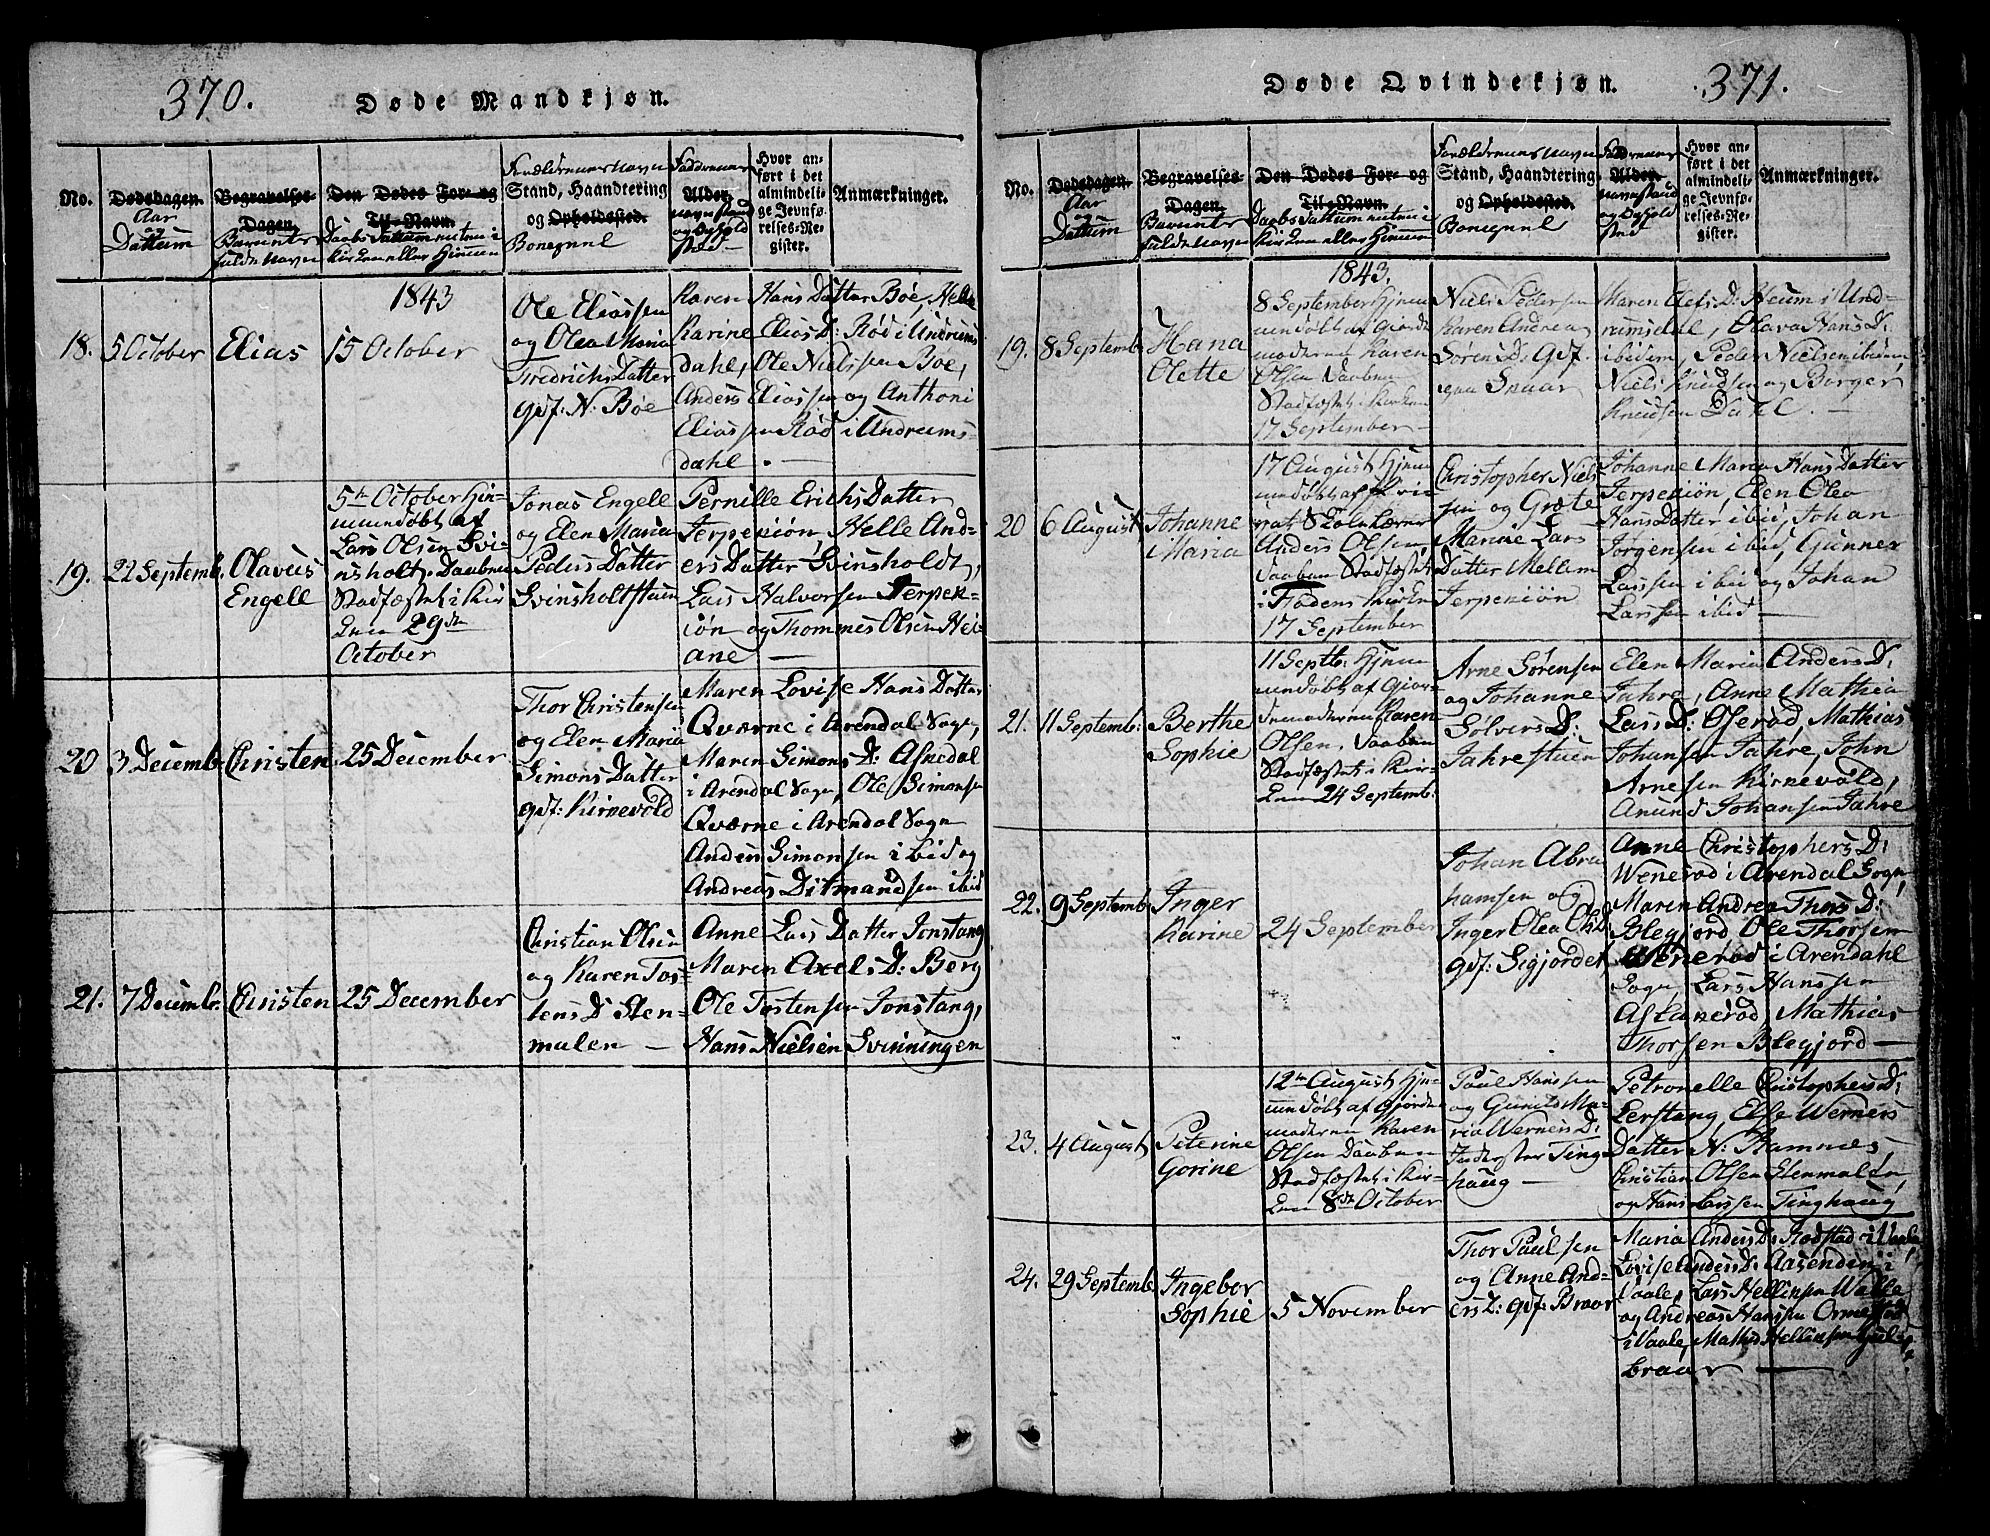 370.
Døde Mandkjøn.
No.
Dødsdagen.
Aar
og
Dattum
Begravelses-
Dagen.
Barnets
fulde Navn
Den Dødes For- og
Til-Navn.
Daabs Dattum enten i
Kirken eller Hjemme
Forældrenes Navn
Stand, Haandtering
og Opholdssted.
Boepæl
Faddrenes
Alder.
Navn, Stand
og Ophold
sted
Hvor an-
ført i det
almindeli-
ge Jevnfø-
relses-Re-
gister.
Anmærkninger.
1843
18.
5 October
Elias
15 October
Ole Eliassen
og Olea Maria
Fredrichs Datter
gdf: N: Bøe
Karen Hans Datter Bøe, Helle
Karine Elias D: Rød i Undrums
dahl, Ole Nielssen Bøe,
Anders Eliassen og Anthoni
Eliassen Rød i Undrums-
dahl. —
19.
22 Septemb.
Olavus
Engell
5te October Hje-
mmedøbt af
Lars Olsen Svi-
nsholt. Daaben
Stadfæstet i Kir
ken 29de
October
Jonas Engell
og Elen Maria
Peders Datter
Svinsholtstuen
Pernille Erichs Datter
Jerpekiøn, Helle And-
ers Datter Svinsholdt,
Lars Halvorsen Jerpek-
iøn og Thommes Olsen Hei-
ane —
20
3 Decemb.
Christen
25 December
Thor Christensen
og Elen Maria
Simons Datter
gdf: Kirnevold
Maren Lovise Hans Datter
Qværne i Arendal Sogn,
Maren Simons D: Askedal
i Arendal Sogn, Ole Simonsen
Qværne i Arendal Sogn
Anders Simonsen ibid og
Andreas Ditmandsen ibid
21.
7 Decembr.
Christen
25 December
Christian Olsen
og Karen Tos-
tens D: Sten-
malen —
Anne Lars Datter Jonstang
Maren Axels D: Berg
Ole Tostensen Jonstang,
Hans Nielsen Svinningen
Døde Qvindekjøn.
371.
No.
Dødsdagen.
Aar
og
Dattum
Begravelses-
Dagen.
Barnets
fulde Navn
Den Dødes For- og
Til-Navn.
Daabs Dattum enten i
Kirken eller Hjemme
Forældrenes Navn
Stand, Haandtering
og Opholdssted.
Boepæl
Faddrenes
Alder.
Navn, Stand
og Ophold
sted
Hvor an-
ført i det
almindeli-
ge Jevnfø-
relses-Re-
gister.
Anmærkninger.
1843.
19.
8 Septemb.
Hana
Olette
8 September Hjem
mendøbt af Gjorde
moderen Karen
Olsen Daaben
Stadfæstet i Kirken
17 September —
Niels Pedersen
Karen Andrea
Sørens D: gdf.
Maren Olefs D: Heum i Und-
rumsdal, Olava Hans D:
ibidem, Peder Nielsen ibidem
Niels Knudsen og Borger
Knudsen Dahl. —
20
6 August
Johanne
Maria
17 August Hjem
mendøbt af pri-
vat Skolelærer
Anders Olsen
Daaben Stadfæstet
i Flodens Kirken
17 September
Christopher Niels-
sen og Grete
Marine Lars
Datter Mellem
Jerpekiøn
Johanne Maria Hans Datter
Jerpekiøn, Elen Olea
Hans Datter ibid, Johan
Jørgensen ibid, Gunner
Larssen ibid og Johan
Larssen ibid —
21.
11 Septemb:
Berthe
Sophie
11 Septb: Hjem
mendøbt af Gjor-
demoderen Karen
Olsen. Daaben
Stadfæstet i Kir-
ken 24 Septemb:
Arne Sørensen
og Johanne
Sølvers D:
Jahrestuen
Elen Maria Anders D:
Jahre, Anne Mathia
Lars D: Olerød, Mathias
Johansen Jahre, John
Arnesen Kirnevold,
Anund Johansen Jahre
22.
9 Septemb.
Inger
Karine
24 September
Johan Abra
hamsen og
Inger Olea Ols D
gdf: Sigjordet
Anne Christophers D:
Wenerød i Arendal Sogn,
Maren Andrea Thors D:
Blegjord Ole Thorsen
Wenerød i Arendahl
Sogn, Lars Hanssen
Askanerød, Mathias
Thorsen Blegjord —
23.
4 August
Peterine
Gorine
12te August Hje-
mmendøbt af Gjorde
moderen Karen
Olsen Daaben
Stadfæstet i Kir-
ken 8de October
Paul Hanssen
og Gunild Ma-
ria Werners D:
Inderster Ting-
haug —
Petronelle Christophers D:
Lerstang, Else Werners
Datter N: Ramnes,
Christian Olsen Stenmalen,
og Hans Larssen Tinghaug
24.
29 Septemb.
Ingebor
Sophie
5 November
Thor Paulsen
og Anne And-
ers D: gdf: Braar
Maria Anders D: Rodstad i Vaale,
Lovise Anders D: Aasenden i
Vaale, Lars Hellinsen Walle
og Andreas Hanssen Ormerød
i Vaale, Mathis Hellinsen
braar —